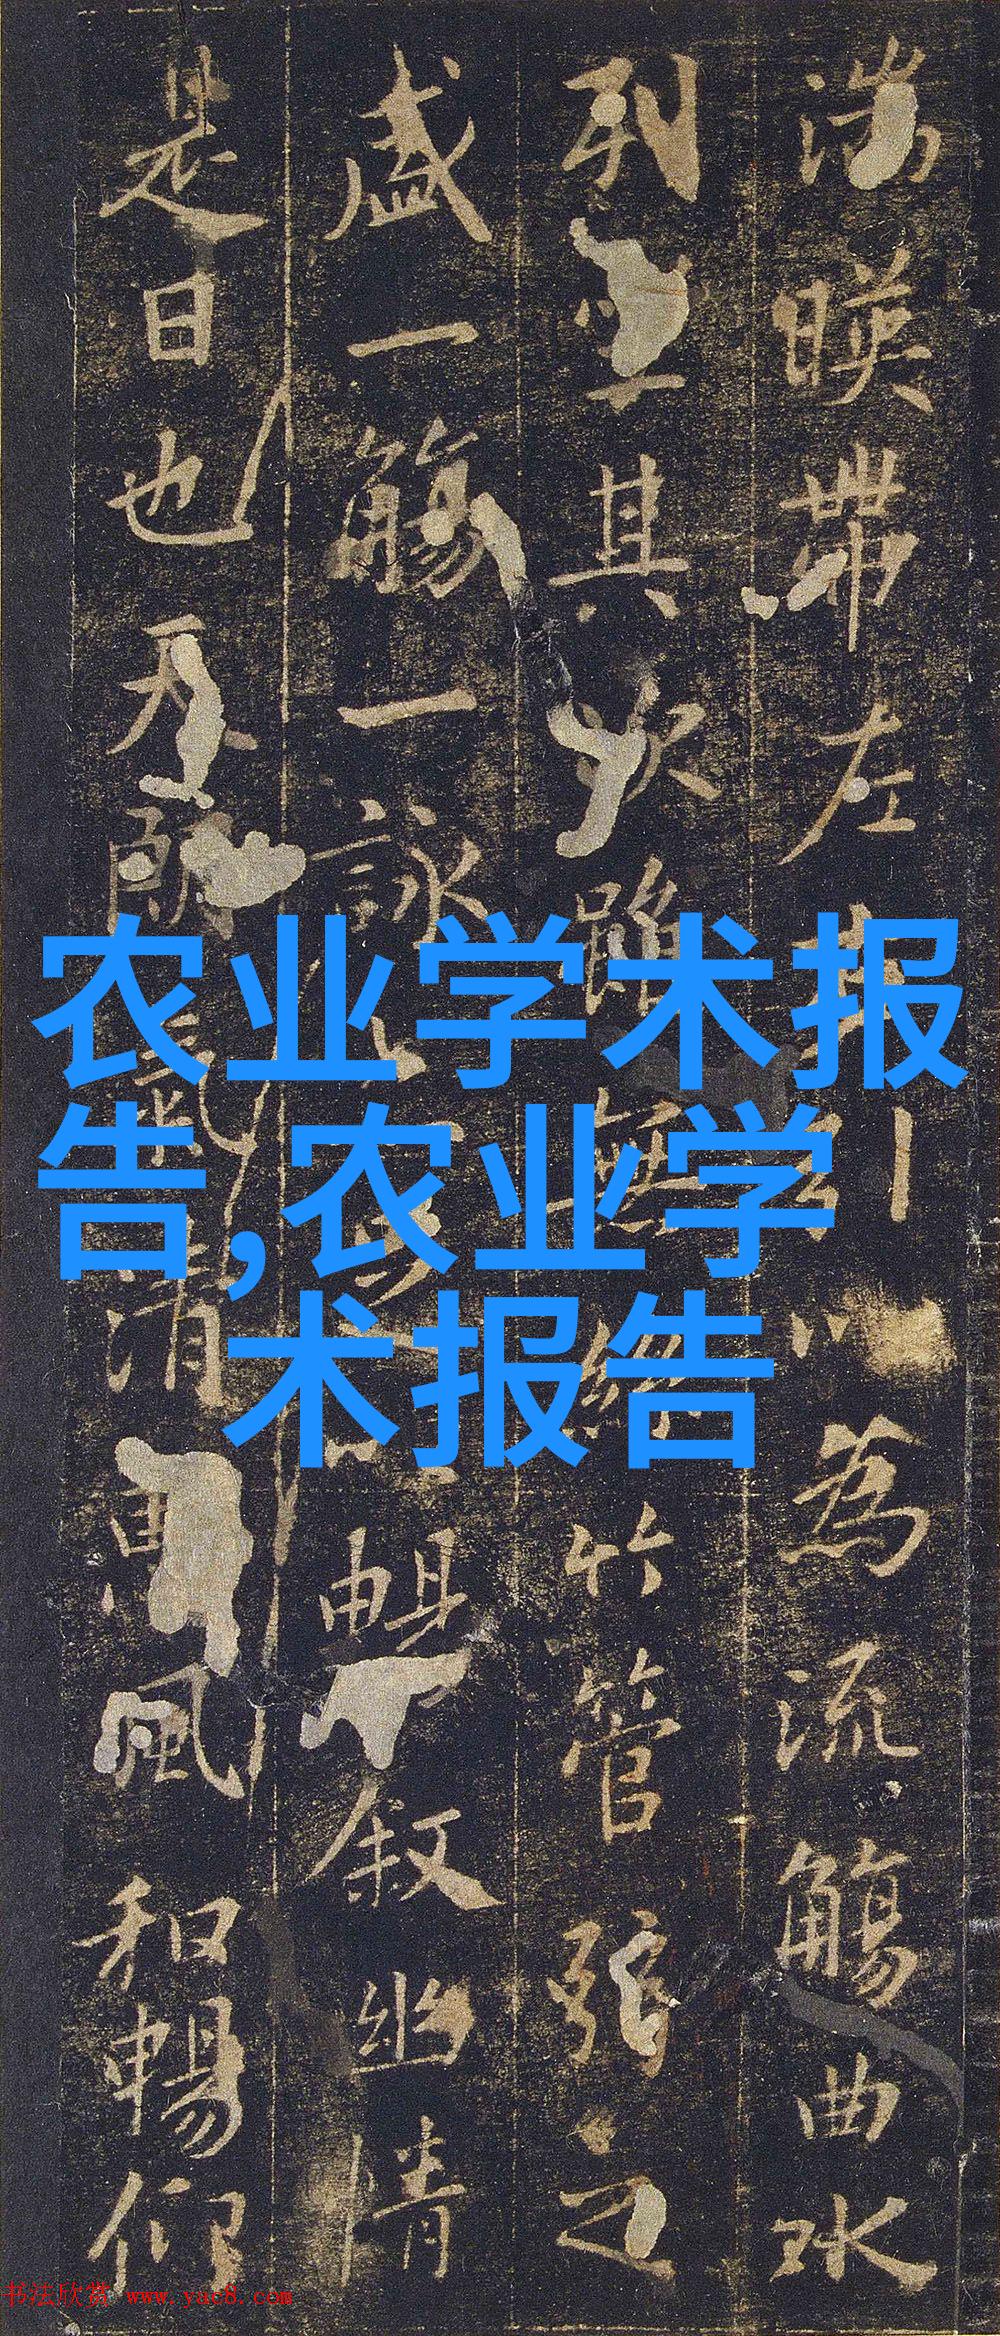 湍暎帶左引以為流觴曲水
列坐其次雖無絲竹管弦之
盛一觴一詠暢敘幽情
是日也天朗氣清惠風和暢仰
农业学术报
告,农业学
术报告
书法欣赏 www.yac8.com